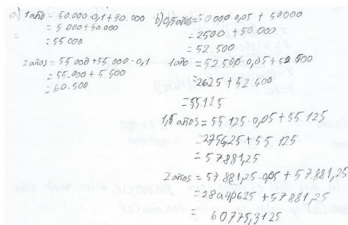 a) 1año = 50.000 · 0,1 + 50.000
= 5.000 + 50.000
= 55.000
2años = 55.000 + 55.000 · 0,1
= 55.000 + 5.500
= 60.500
b) 0,5años = 50.000 · 0,05 + 50000
= 2500 + 50.000
= 52.500
1año = 52.500 · 0,05 + 52.500
= 2625 + 52.500
= 55125
1,5 años = 55.125 · 0,05 + 55.125
= 2756,25 + 55.125
= 57881,25
2 años = 57.881,25 · 0,05 + 57.881,25
= 2894,0625 + 57.881,25
= 60775,3125